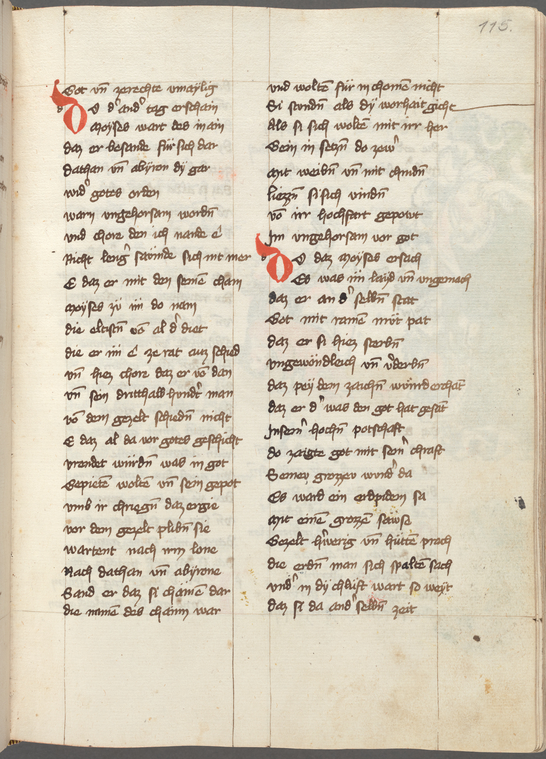 115.
Got vn̄ zerechte vnmaylig
Do d' and' tag erschain
Moyses wart des in ain
daz er besande für sich dar
dathan vn̄ abyron dy gar
wid' gotes orden
warn vngehorsam wordn̄
vnd chore den ich nande e'
Nicht leng' sawmde sich mit mer
E daz er mit den seinen cham
Moyses zü im do nam
die eltistn̄ vō al d' diet
die er im e' ze rat auz schied
vn̄ hiez chore daz er vō dan
vn̄ sein dritthalb hund't man
vō dem gezelt schiedn̄ nicht
E daz al da vor gotes geschicht
vrendet würdn̄ was in got
Gepieten wolten vn̄ sein gepot
vmb ir chriegn̄ daz ergie
vor dem gezelt plibn̄ sie
wartent nach irm lone
Nach dathan vn̄ abyrone
Sand er daz si chämen dar
die nāmen des chainn war
vnd wolten für in chomen nicht
Si stundn̄ als dy worhait gicht
als si sich wolten mit irr her
Sein in setzn̄ do zew'
Mit weibn̄ vn̄ mit chindn̄
liezzn̄ si sich vindn̄
vō irr hochfart gepowt
Im vngehorsam vor got
Do daz Moyses ersach
Es was im layd vn̄ vngemach
daz er an d' selbn̄ stat
Got mit rainē müt pat
daz er si hiez sterbn̄
vngewöndleich vn̄ v'derbn̄
daz pey dem zaichn̄ würd erchant
daz er d' was den got hat gesāt
Insern' hochn̄ potschaft
do zaigte got mit sein' chraft
Seiner grozzer wund' da
Es ward ein erdpidem sa
Mit einē grozzē saws
Gezelt h'werig vn̄ hüttē prach
die erdn̄ man sich spaltē sach
vnd' in dy chluft wart so weyt
daz si da and' selbn̄ zeit